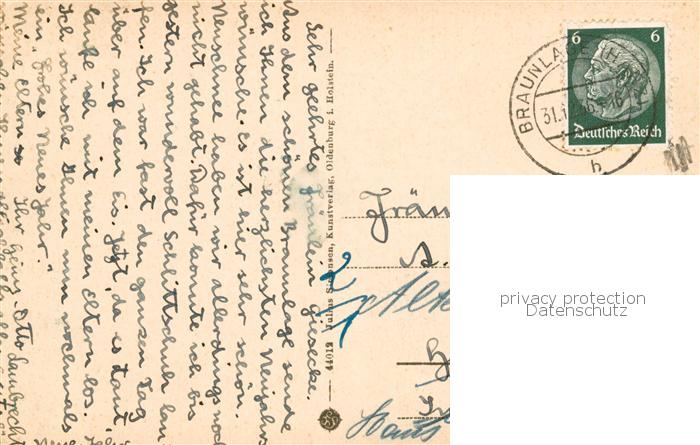 Sehr geehrtes Fräulein Giesecke.
Aus dem schönen Braunlage sende
ich Ihnen die herzlichsten Neujahrs
wünsche. Es ist hier sehr schön.
Neuschnee haben wir allerdings noch
nicht gehabt. Dafür konnte ich bis
gestern wundervoll Schlittschuh lau
fen. Ich war fast den ganzen Tag
über auf dem Eis. Jetzt, da es taut
laufe ich mit meinen Eltern los.
Ich wünsche Ihnen nun nochmals
ein "frohes Neues Jahr".
Ihr Otto Lambrecht
Meine Eltern
Neue Jahr
44012 Julius Simonsen, Kunstverlag, Oldenburg i. Holstein.
BRAUNLAGE (H
31.
b
6 6
Deutsches Reich
Fräu
A.
2
1
Haus
privacy protection
Datenschutz